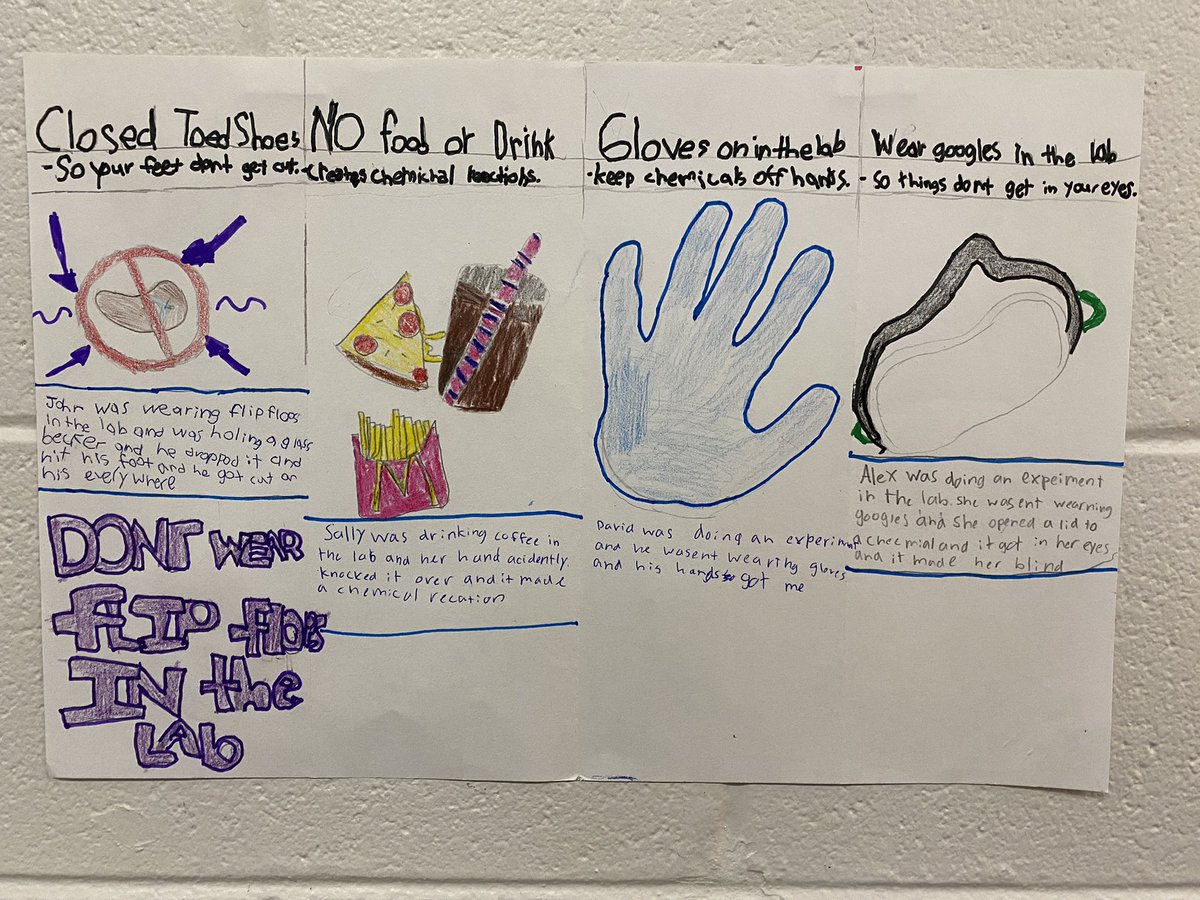 Closed Toed Shoes
-So your feet dont get cut.
John was wearing flip flops
in the lab and was holing a glass
becker and he dropped it and
hit his foot and he got cut on
his every where
DONT WEAR
flIP flops
IN the
LAb
NO food or Drink
-Creates Chemichal reactions.
Sally was drinking coffee in
the lab and her hand acidently
knocked it over and it made
a chemical recation
Gloves on in the lab
-keep chemicals off hands.
David was doing an experimn
and he wasent wearing gloves
and his hands got me
Wear googles in the lab
- so things dont get in your eyes.
Alex was doing an expeiment
in the lab. she wasent wearning
googles and she opened a lid to
a checmial and it got in her eyes
and it made her blind